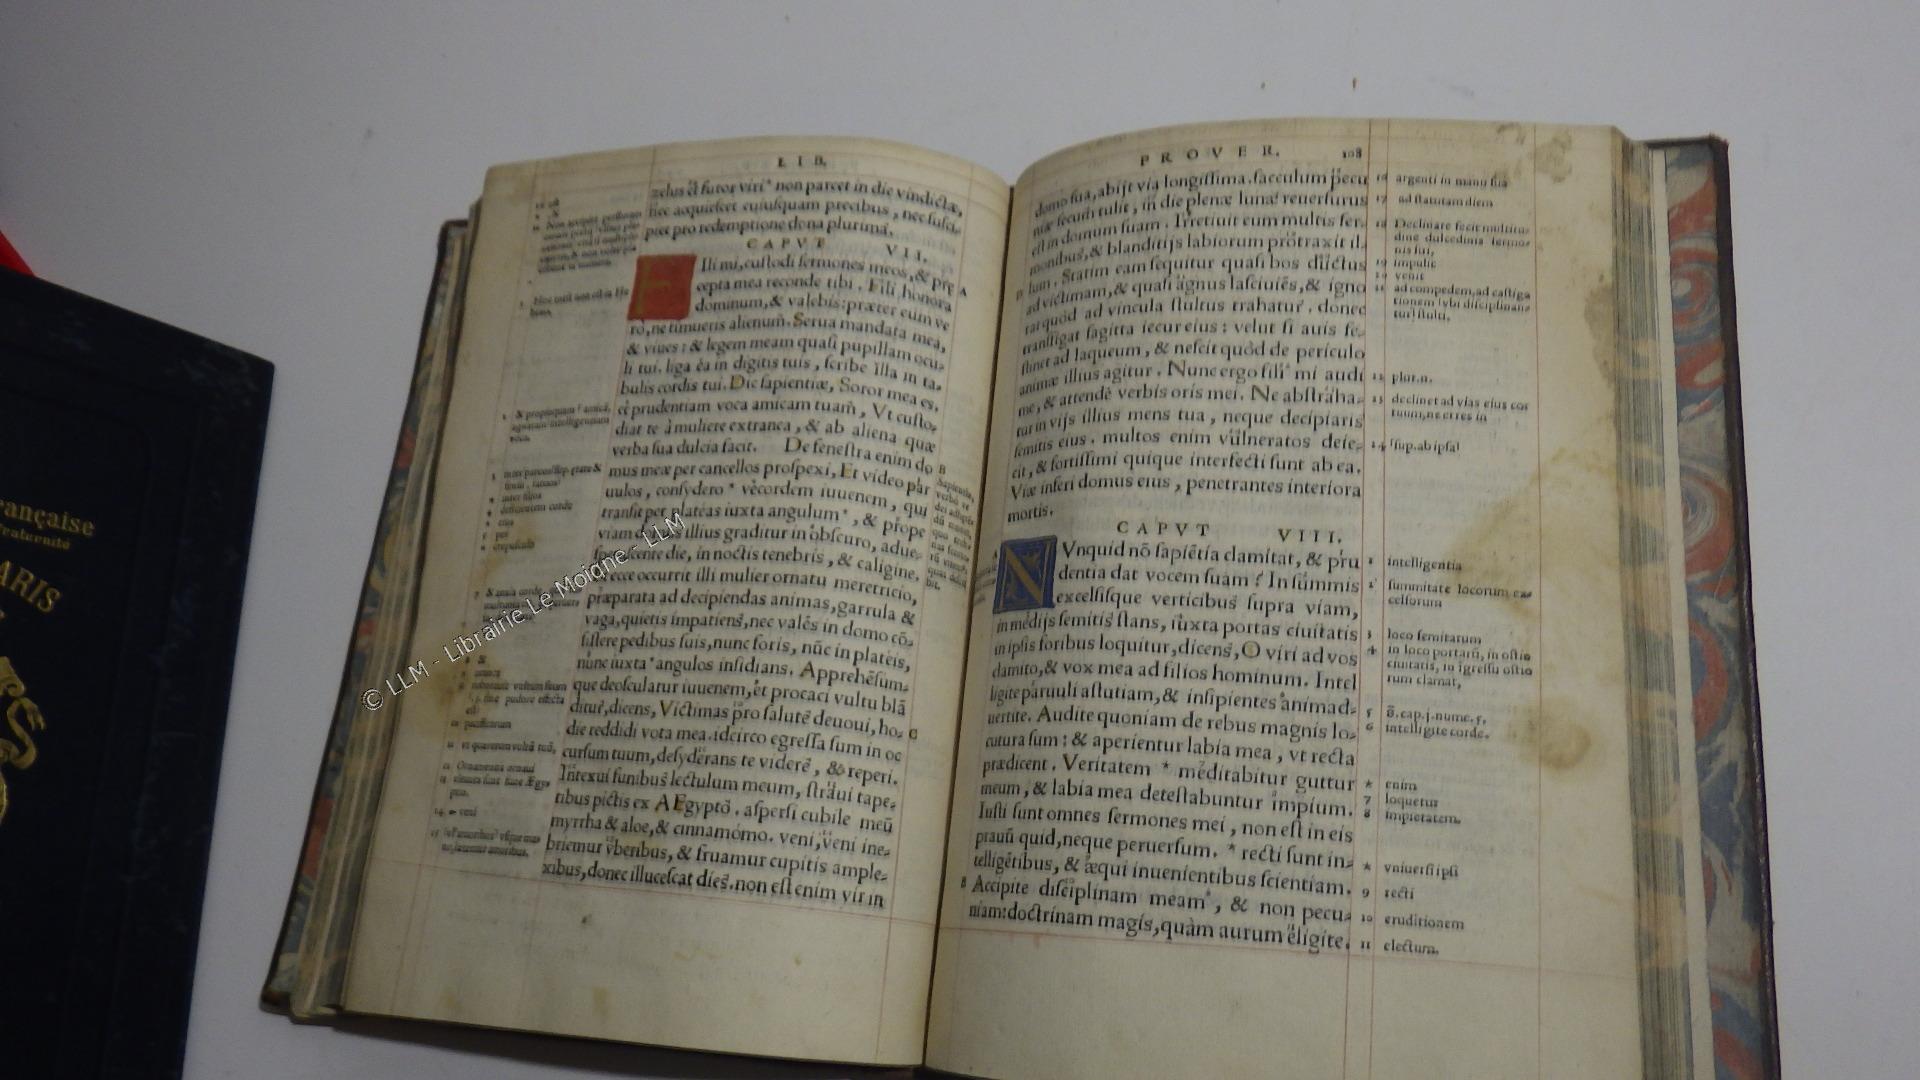 LIB.
zelus & furor viri * non parcet in die vindictæ,
nec acquiescet cuiusquam precibus, nec susci-
piet pro redemptione dona plurima.
CAPVT VII.
FIli mi, custodi sermones meos, & pre
cepta mea reconde tibi. Fili honora
dominum, & valebis: præter eum ve
rò, ne timueris alienum. Serua mandata mea,
& viues: & legem meam quasi pupillam ocu-
li tui. liga ea in digitis tuis, scribe illa in ta-
bulis cordis tui. Dic sapientiæ, Soror mea es.
& prudentiam voca amicam tuam, Vt custo-
diat te à muliere extranea, & ab aliena quæ
verba sua dulcia facit. De fenestra enim do
mus meæ per cancellos prospexi, Et video par
uulos, consydero * vecordem iuuenem, qui
transit per plateas iuxta angulum*, & prope
viam domus illius graditur in obscuro, adue-
sperascente die, in noctis tenebris, & caligine.
Et ecce occurrit illi mulier ornatu meretricio,
præparata ad decipiendas animas, garrula &
vaga, quietis impatiens, nec valēs in domo cō-
sistere pedibus suis, nunc foris, nūc in plateis,
nunc iuxta * angulos insidians. Apprehēsum-
que deosculatur iuuenem, et procaci vultu blā
ditur, dicens, Victimas pro salute deuoui, ho-
die reddidi vota mea. idcirco egressa sum in oc
cursum tuum, desyderans te videre, & reperi.
Intexui funibus lectulum meum, straui tape-
tibus pictis ex AEgypto. aspersi cubile meū
myrrha & aloe, & cinnamomo. veni, veni ine-
briemur vberibus, & fruamur cupitis ample-
xibus, donec illucescat dies. non est enim vir in
A
B
Sapientia,
C
PROVER. 108
domo sua, abijt via longissima. sacculum pecu
niæ secum tulit, in die plenæ lunæ reuersurus
est in domum suam. Irretiuit eum multis ser-
monibus, & blanditijs labiorum protraxit il-
lum. Statim eam sequitur quasi bos ductus
ad victimam, & quasi agnus lasciuiēs, & igno
rat quòd ad vincula stultus trahatur. donec
transfigat sagitta iecur eius: velut si auis fe-
stinet ad laqueum, & nescit quòd de periculo
animæ illius agitur. Nunc ergo fili mi audi
me, & attende verbis oris mei. Ne abstraha-
tur in vijs illius mens tua, neque decipiaris
semitis eius. multos enim vulneratos deie-
cit, & fortissimi quique interfecti sunt ab ea.
Viæ inferi domus eius, penetrantes interiora
mortis.
CAPVT VIII.
NVnquid nō sapiētia clamitat, & pru
dentia dat vocem suam? In summis
excelsisque verticibus supra viam,
in medijs semitis stans, iuxta portas ciuitatis
in ipsis foribus loquitur, dicens, O viri ad vos
clamito, & vox mea ad filios hominum. Intel
ligite paruuli astutiam, & insipientes animad-
uertite. Audite quoniam de rebus magnis lo-
cutura sum: & aperientur labia mea, vt recta
prædicent. Veritatem * meditabitur guttur
meum, & labia mea detestabuntur impium.
Iusti sunt omnes sermones mei, non est in eis
prauū quid, neque peruersum. * recti sunt in-
telligētibus, & æqui inuenientibus scientiam.
Accipite disciplinam meam, & non pecu-
niam: doctrinam magis, quàm aurum eligite.
B
16 argenti in manu sua
17 ad statutam diem
18 Declinare fecit multitu-
dine dulcedinis sermo-
nis sui,
19 impulit
20 venit
21 ad compedem, ad castiga
tionem
12 plur.n.
13 declinet ad vias eius cor
tuum, ne erres in
14 sup. ab ipsa
1 intelligentia
2 summitate locorum ex-
celsorum
3 loco semitarum
4 in loco portarū, in ostio
ciuitatis, in igressu ostio
rum clamat,
5 cap.j.nume.5.
6 intelligite corde.
* enim
7 loquetur
8 impietatem.
* vniuersi ipsi
9 recti
10 eruditionem
11 electum.
© LLM - Librairie Le Moigne - LLM
rançaise
raternité
ARIS